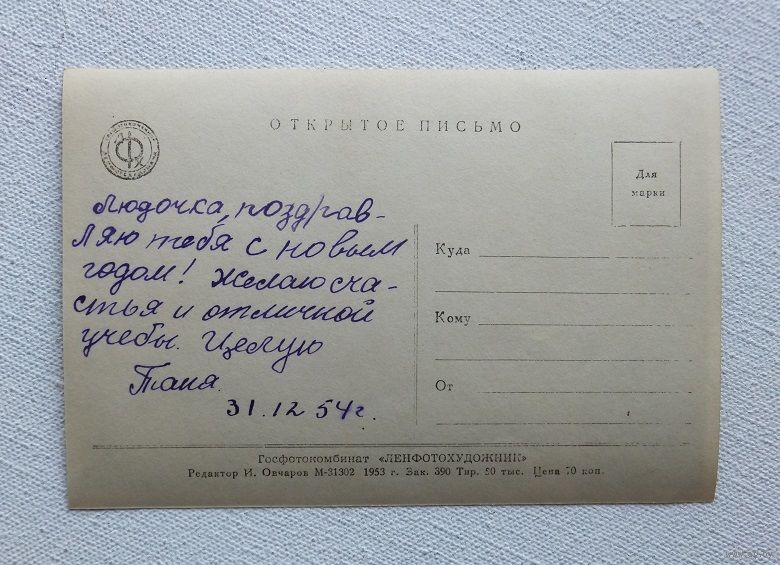 ОТКРЫТОЕ ПИСЬМО
Для
марки
Людочка, поздрав-
ляю тебя с новым
годом! Желаю сча-
стья и отличной
учебы. Целую
Таня.
31.12.54г.
Куда
Кому
От
Госфотокомбинат «ЛЕНФОТОХУДОЖНИК»
Редактор И. Овчаров М-31302 1953 г. Зак. 390 Тир. 50 тыс. Цена 70 коп.